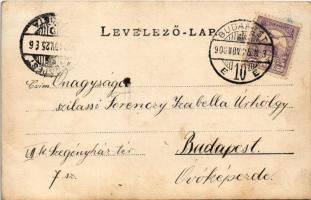 LEVELEZŐ-LAP
BUDAPEST
10
E E
Czim: Önagysága
Szilassi Ferenczy Izabella Úrhölgy
VII. k. Szegényház tér
Budapest.
7 sz.
Óvóképezde.